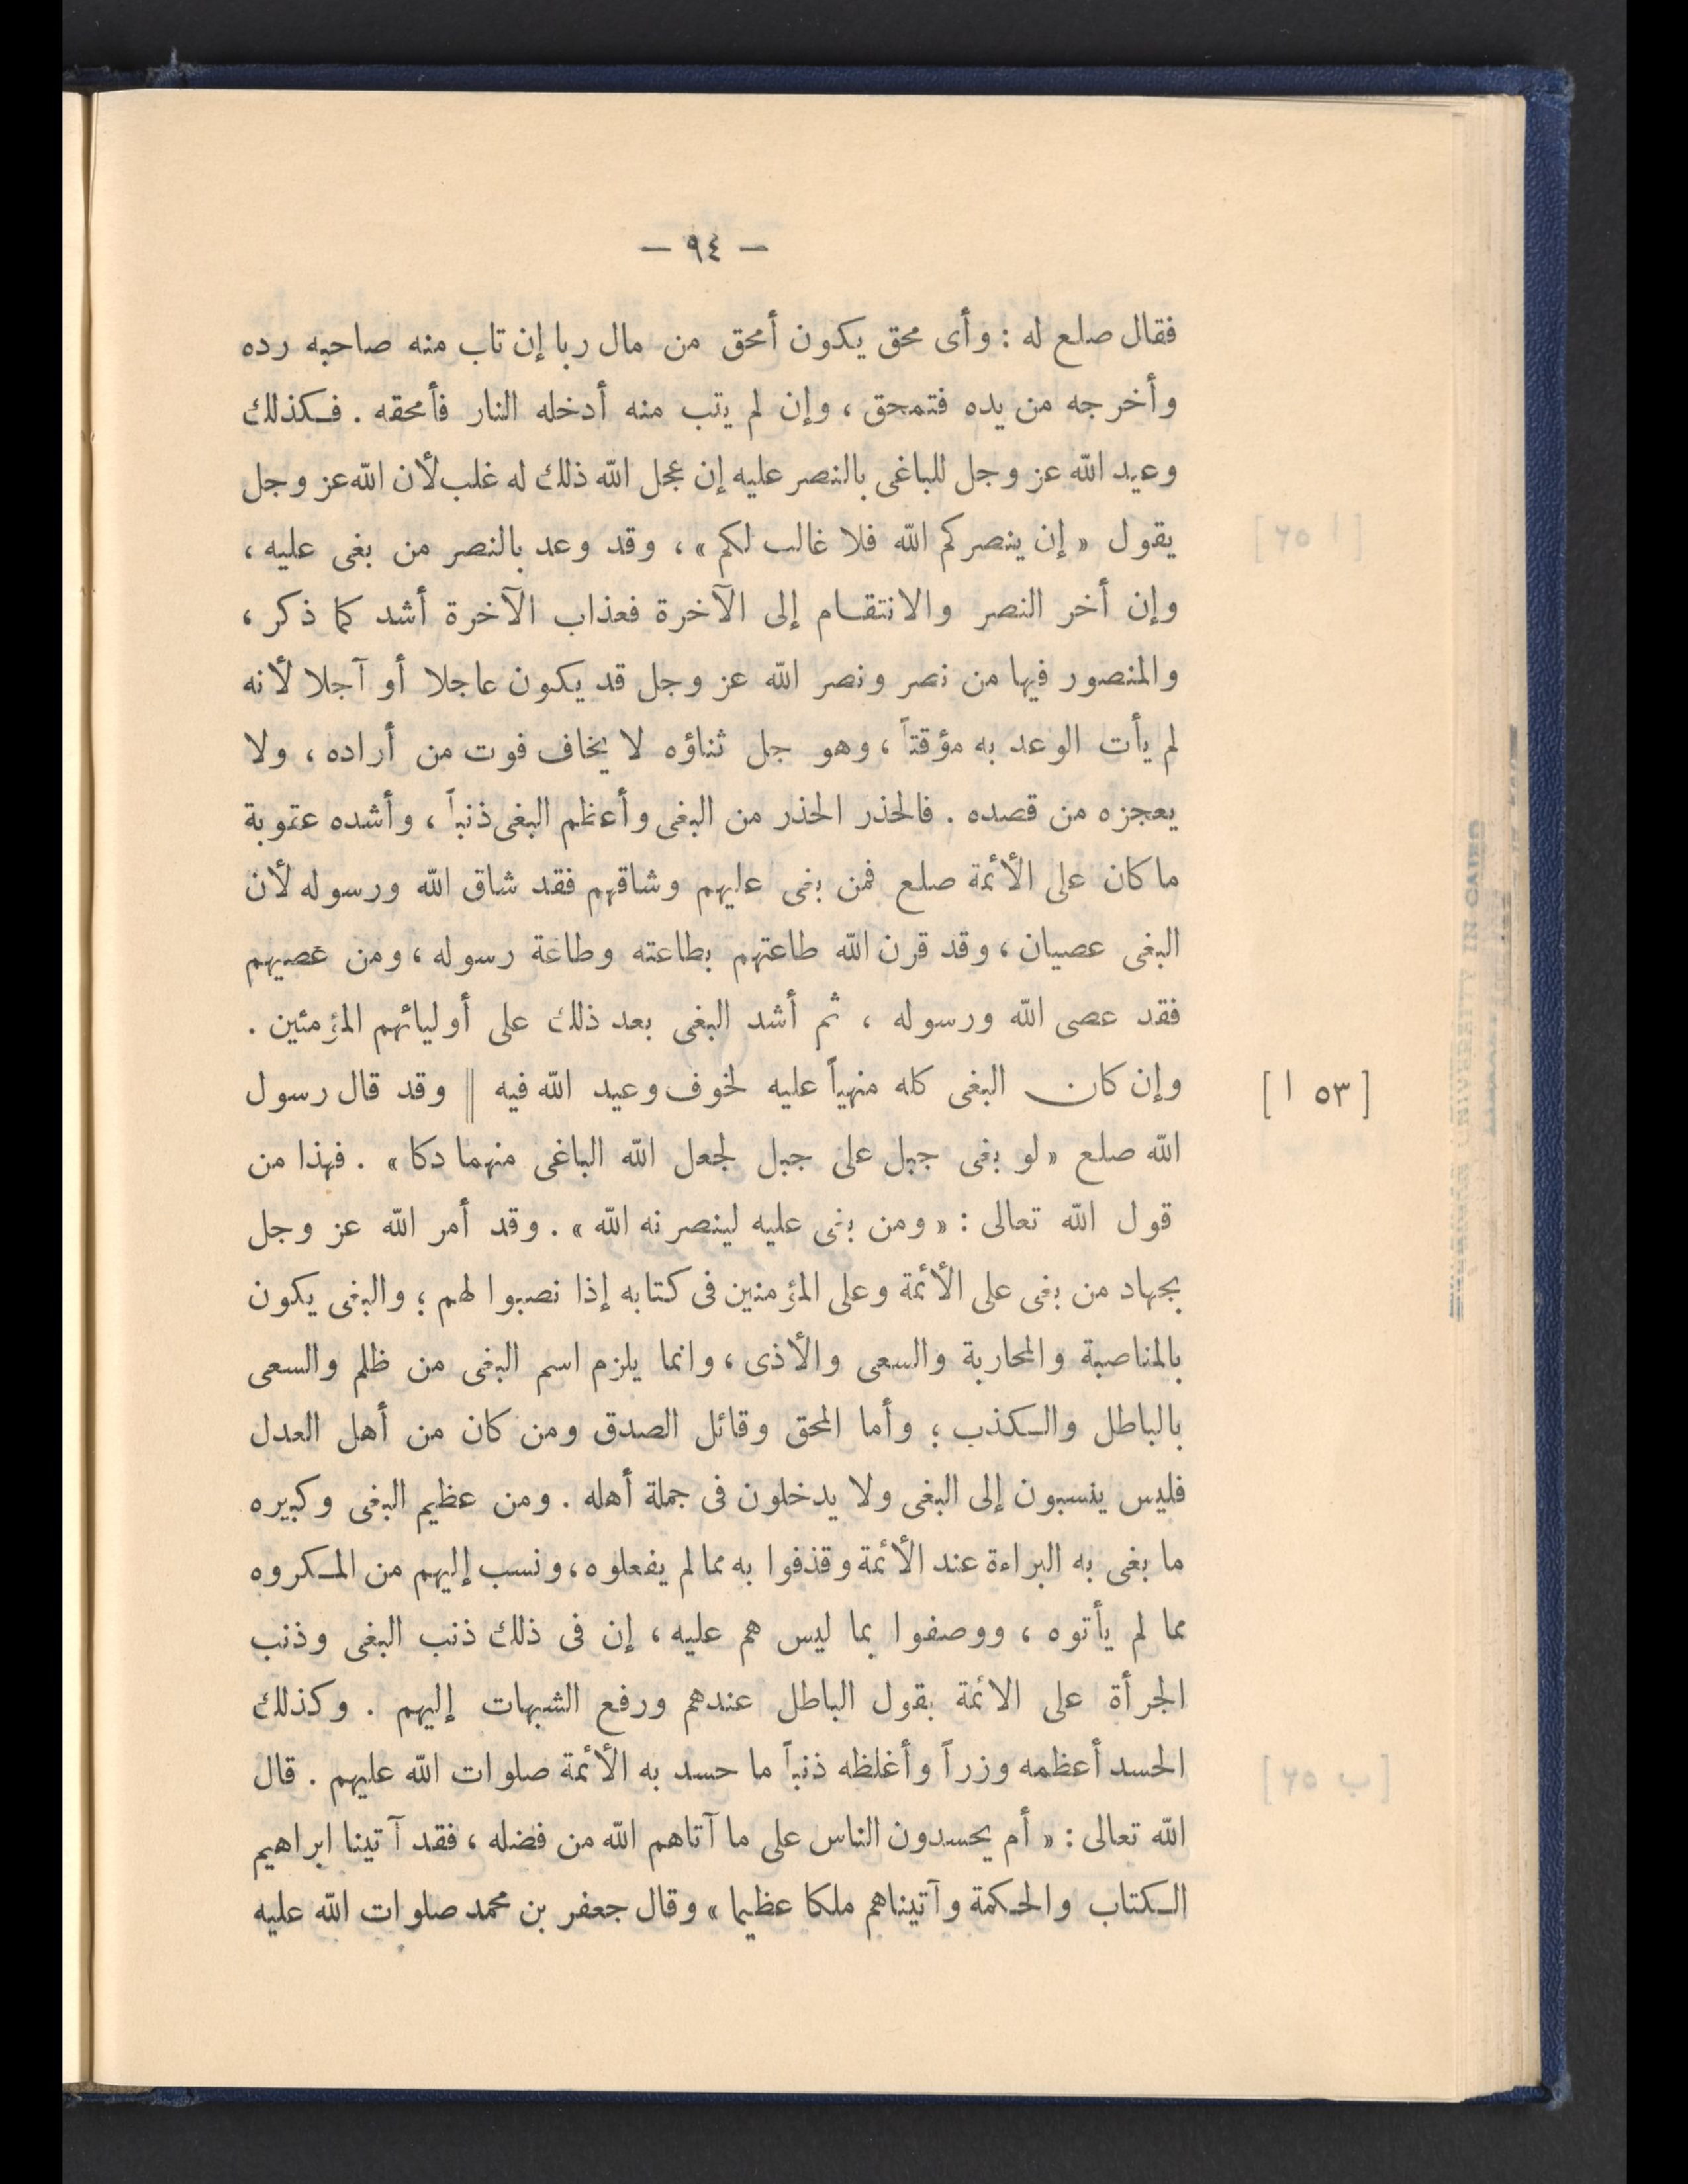 — ٩٤ —
فقال صلع له : وأى محق يكون أمحق من مال ربا إن تاب منه صاحبه رده
وأخرجه من يده فتمحق ، وإن لم يتب منه أدخله النار فأمحقه . فكذلك
وعيد الله عز وجل للباغى بالنصر عليه إن عجل الله ذلك له غلب لأن الله عز وجل
يقول « إن ينصركم الله فلا غالب لكم » ، وقد وعد بالنصر من بغى عليه ،
وإن أخر النصر والانتقام إلى الآخرة فعذاب الآخرة أشد كما ذكر ،
والمنصور فيها من نصر ونصر الله عز وجل قد يكون عاجلا أو آجلا لأنه
لم يأت الوعد به مؤقتاً ، وهو جل ثناؤه لا يخاف فوت من أراده ، ولا
يعجزه من قصده . فالحذر الحذر من البغى وأعظم البغى ذنباً ، وأشده عقوبة
ما كان على الأئمة صلع فمن بغى عليهم وشاقهم فقد شاق الله ورسوله لأن
البغى عصيان ، وقد قرن الله طاعتهم بطاعته وطاعة رسوله ، ومن عصيهم
فقد عصى الله ورسوله ، ثم أشد البغى بعد ذلك على أوليائهم المؤمنين .
وإن كان البغى كله منهياً عليه لخوف وعيد الله فيه || وقد قال رسول
[ ٥٣ ا ]
الله صلع « لو بغى جبل على جبل لجعل الله الباغى منهما دكا » . فهذا من
قول الله تعالى : « ومن بغى عليه لينصرنه الله » . وقد أمر الله عز وجل
بجهاد من بغى على الأئمة وعلى المؤمنين فى كتابه إذا نصبوا لهم ؛ والبغى يكون
بالمناصبة والمحاربة والسعى والأذى ، وانما يلزم اسم البغى من ظلم والسعى
بالباطل والكذب ؛ وأما المحق وقائل الصدق ومن كان من أهل العدل
فليس ينسبون إلى البغى ولا يدخلون فى جملة أهله . ومن عظيم البغى وكبيره
ما بغى به البراءة عند الأئمة وقذفوا به مما لم يفعلوه ، ونسب إليهم من المكروه
مما لم يأتوه ، ووصفوا بما ليس هم عليه ، إن فى ذلك ذنب البغى وذنب
الجرأة على الائمة بقول الباطل عندهم ورفع الشبهات إليهم . وكذلك
الحسد أعظمه وزراً وأغلظه ذنباً ما حسد به الأئمة صلوات الله عليهم . قال
الله تعالى : « أم يحسدون الناس على ما آتاهم الله من فضله ، فقد آتينا ابراهيم
الكتاب والحكمة وآتيناهم ملكا عظيما » وقال جعفر بن محمد صلوات الله عليه